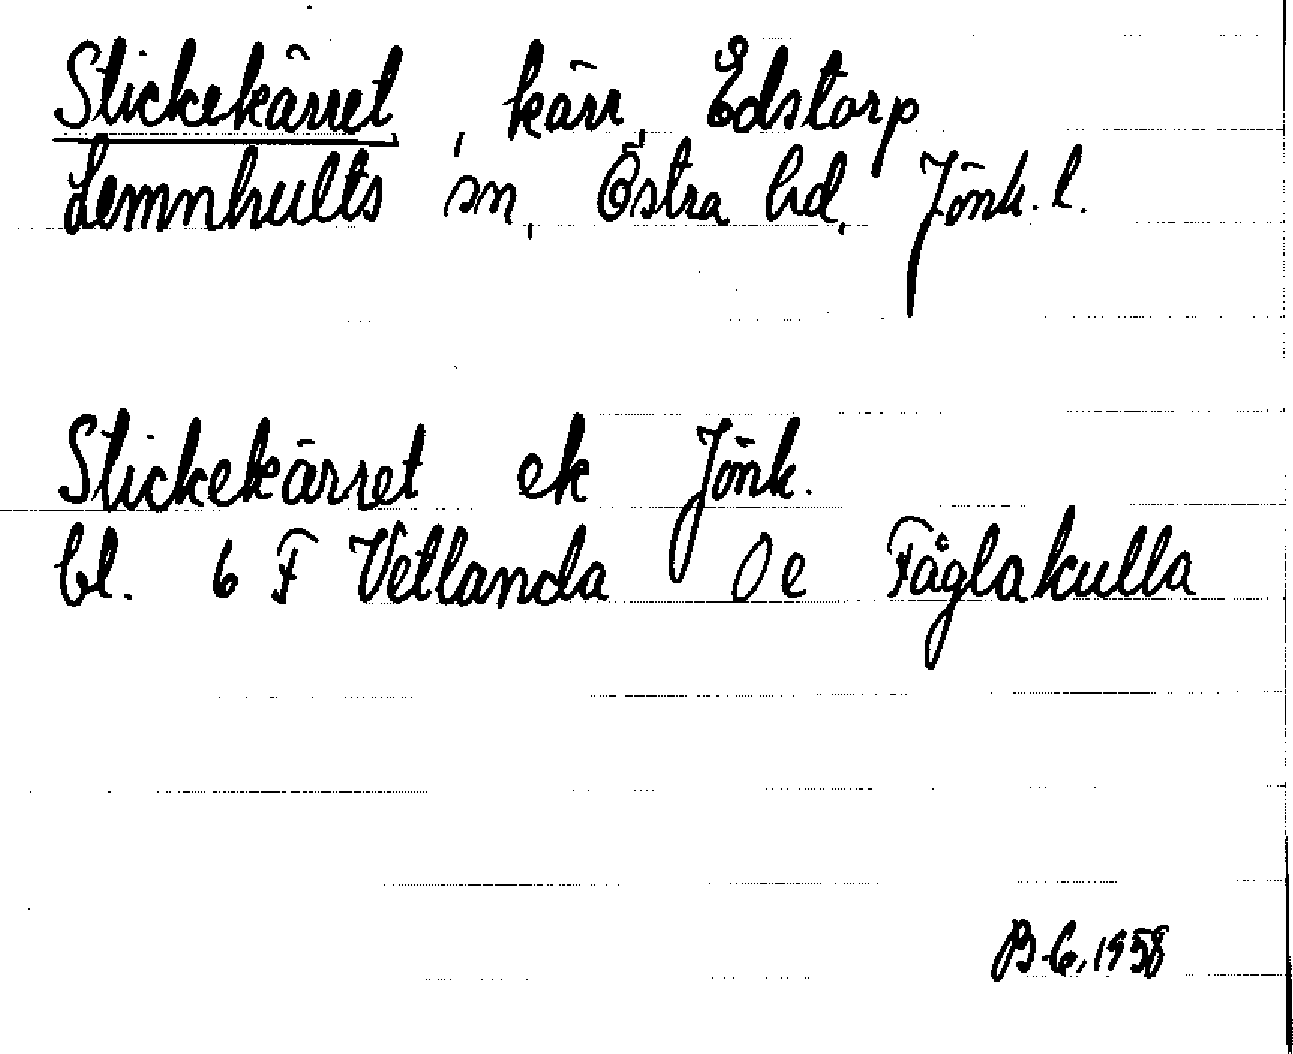 Stickekärret, kärr, Edstorp
Lemnhults sn, Östra hd, Jönk. l.
Stickekärret ek Jönk.
bl. 6 F Vetlanda 0 e Fåglakulla
1958